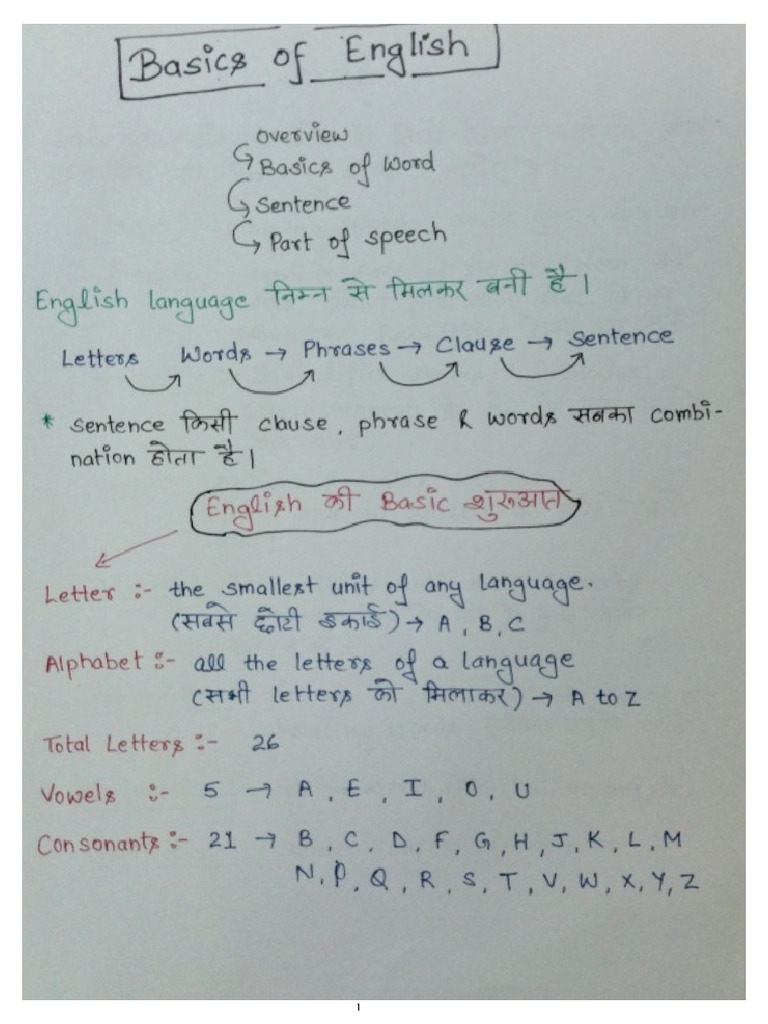 Basics of English
Overview
Basics of Word
Sentence
Part of speech
English language निम्न से मिलकर बनी है।
Letters Words → Phrases → Clause → Sentence
* Sentence किसी clause, phrase & words सबका combi-
nation होता है।
English की Basic शुरूआत
Letter :- the smallest unit of any language.
(सबसे छोटी इकाई) → A, B, C
Alphabet :- all the letters of a language
(सभी letters को मिलाकर) → A to Z
Total Letters :- 26
Vowels :- 5 → A, E, I, O, U
Consonants :- 21 → B, C, D, F, G, H, J, K, L, M
N, P, Q, R, S, T, V, W, X, Y, Z
1